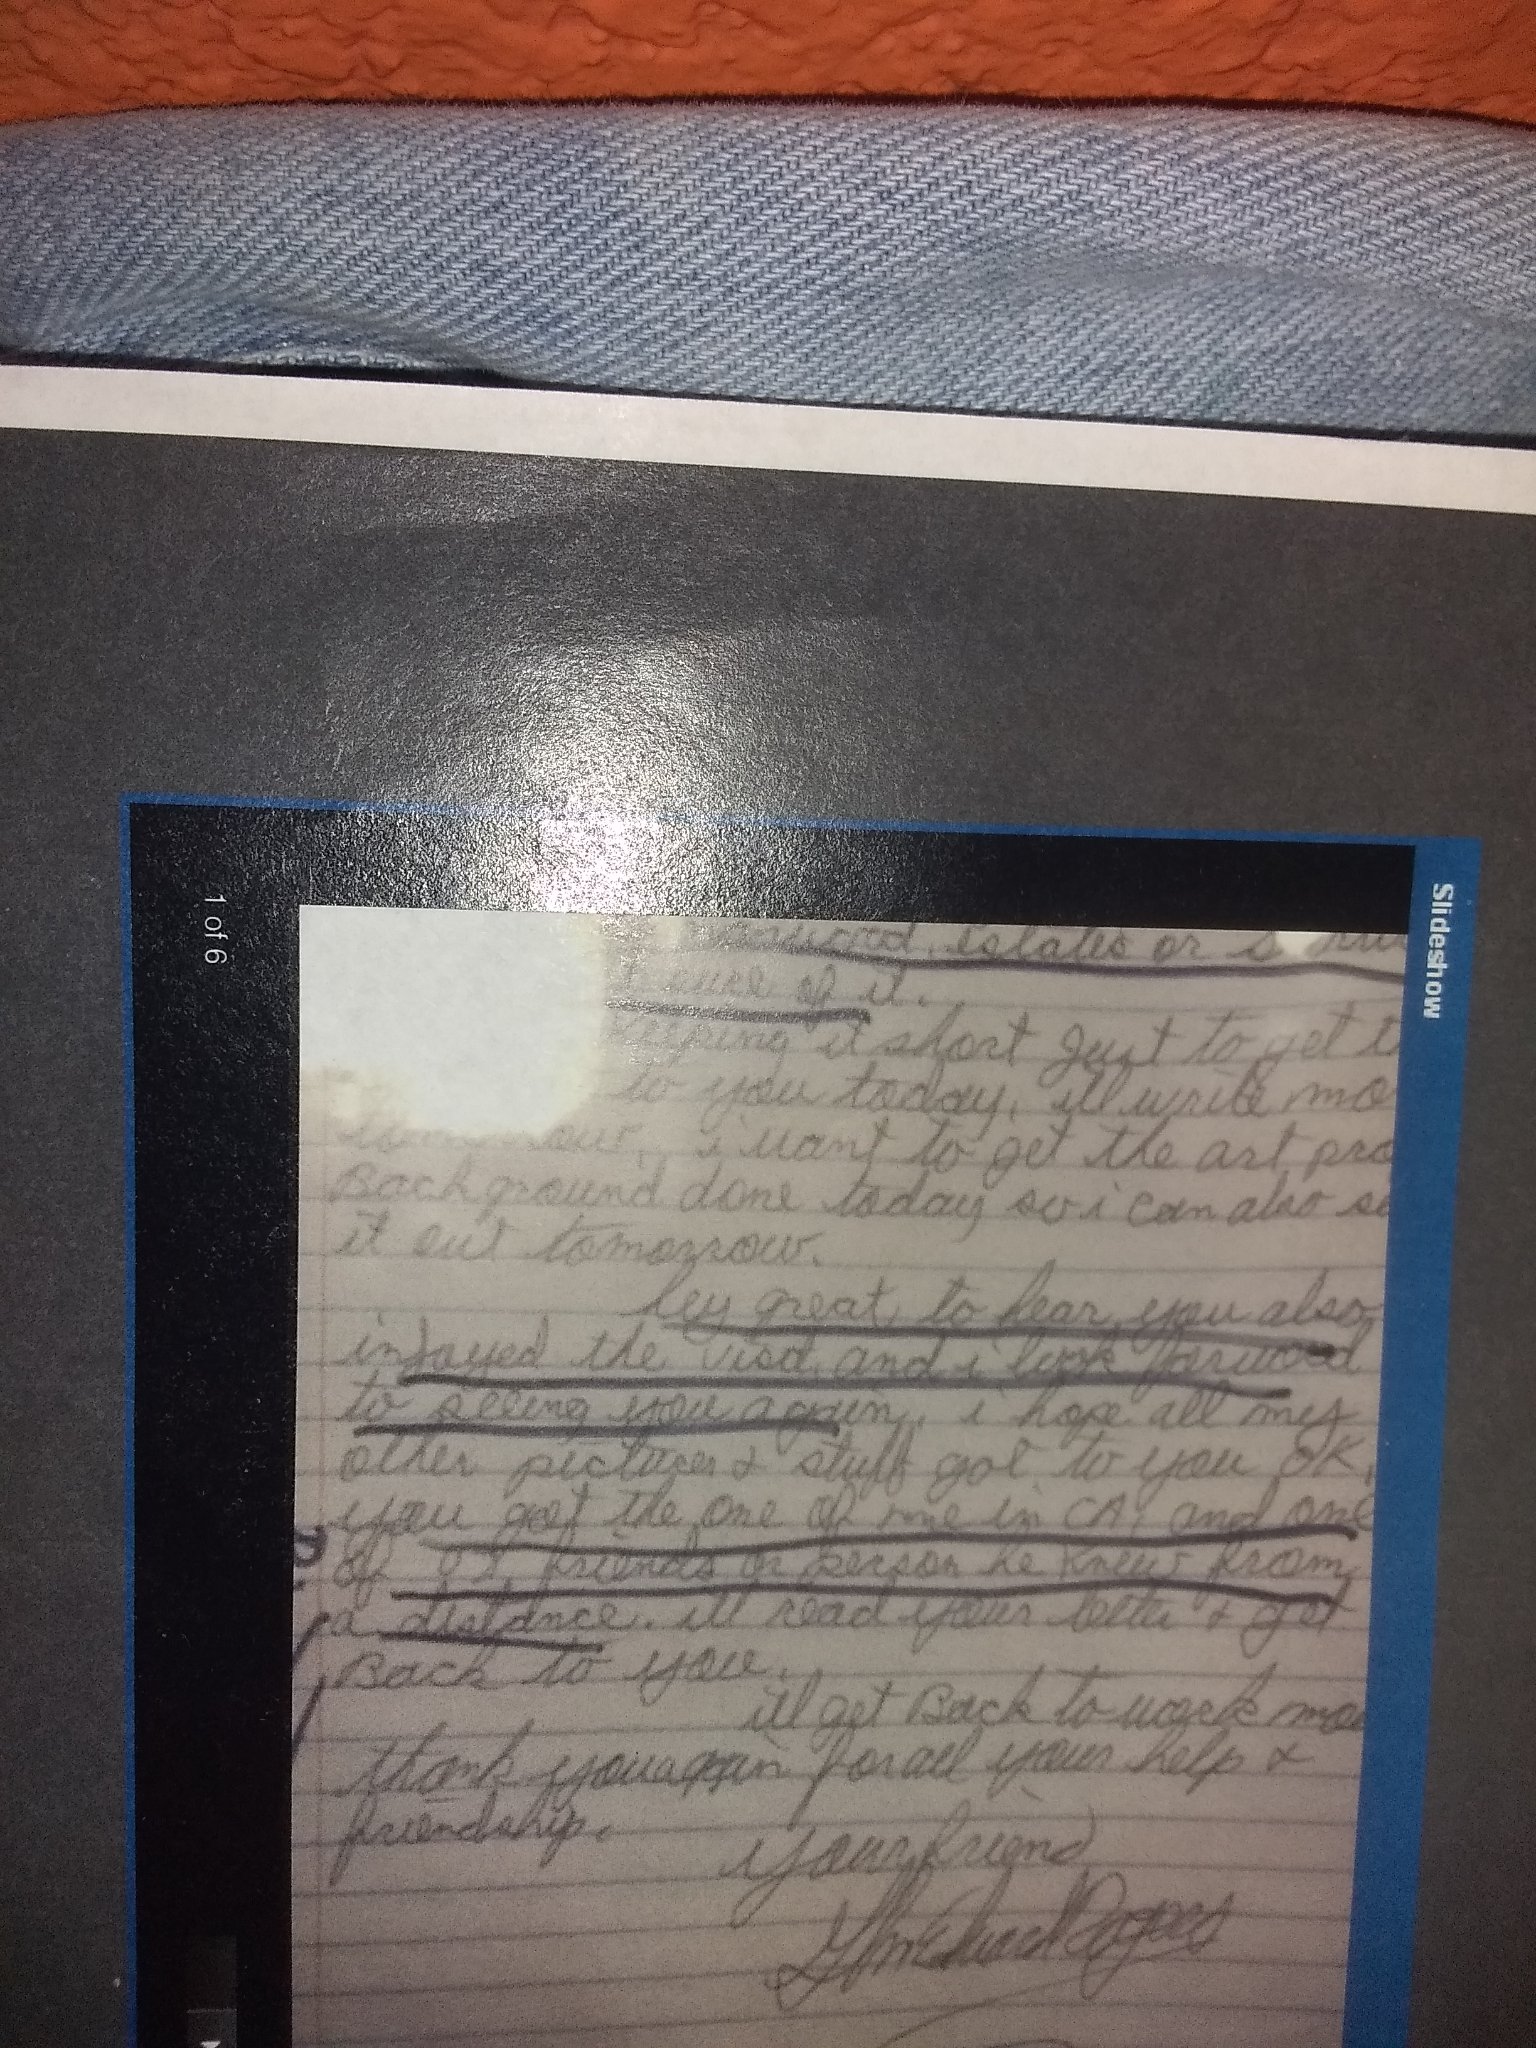 Slideshow
estates or is
of it.
it short Just to get
to you today, ill write
i want to get the art
Background done today so i can also
it out tomorrow.
hey great to hear you also
injoyed the visd, and i look forword
to seeing you again, i hope all my
other pictures & stuff got to you OK,
you got the one of me in CA, and one
of friends or person he knew from
a distance. ill read your letter & get
Back to you.
ill get Back to work
thank you again for all your help &
friendship.
your friend,
1 of 6